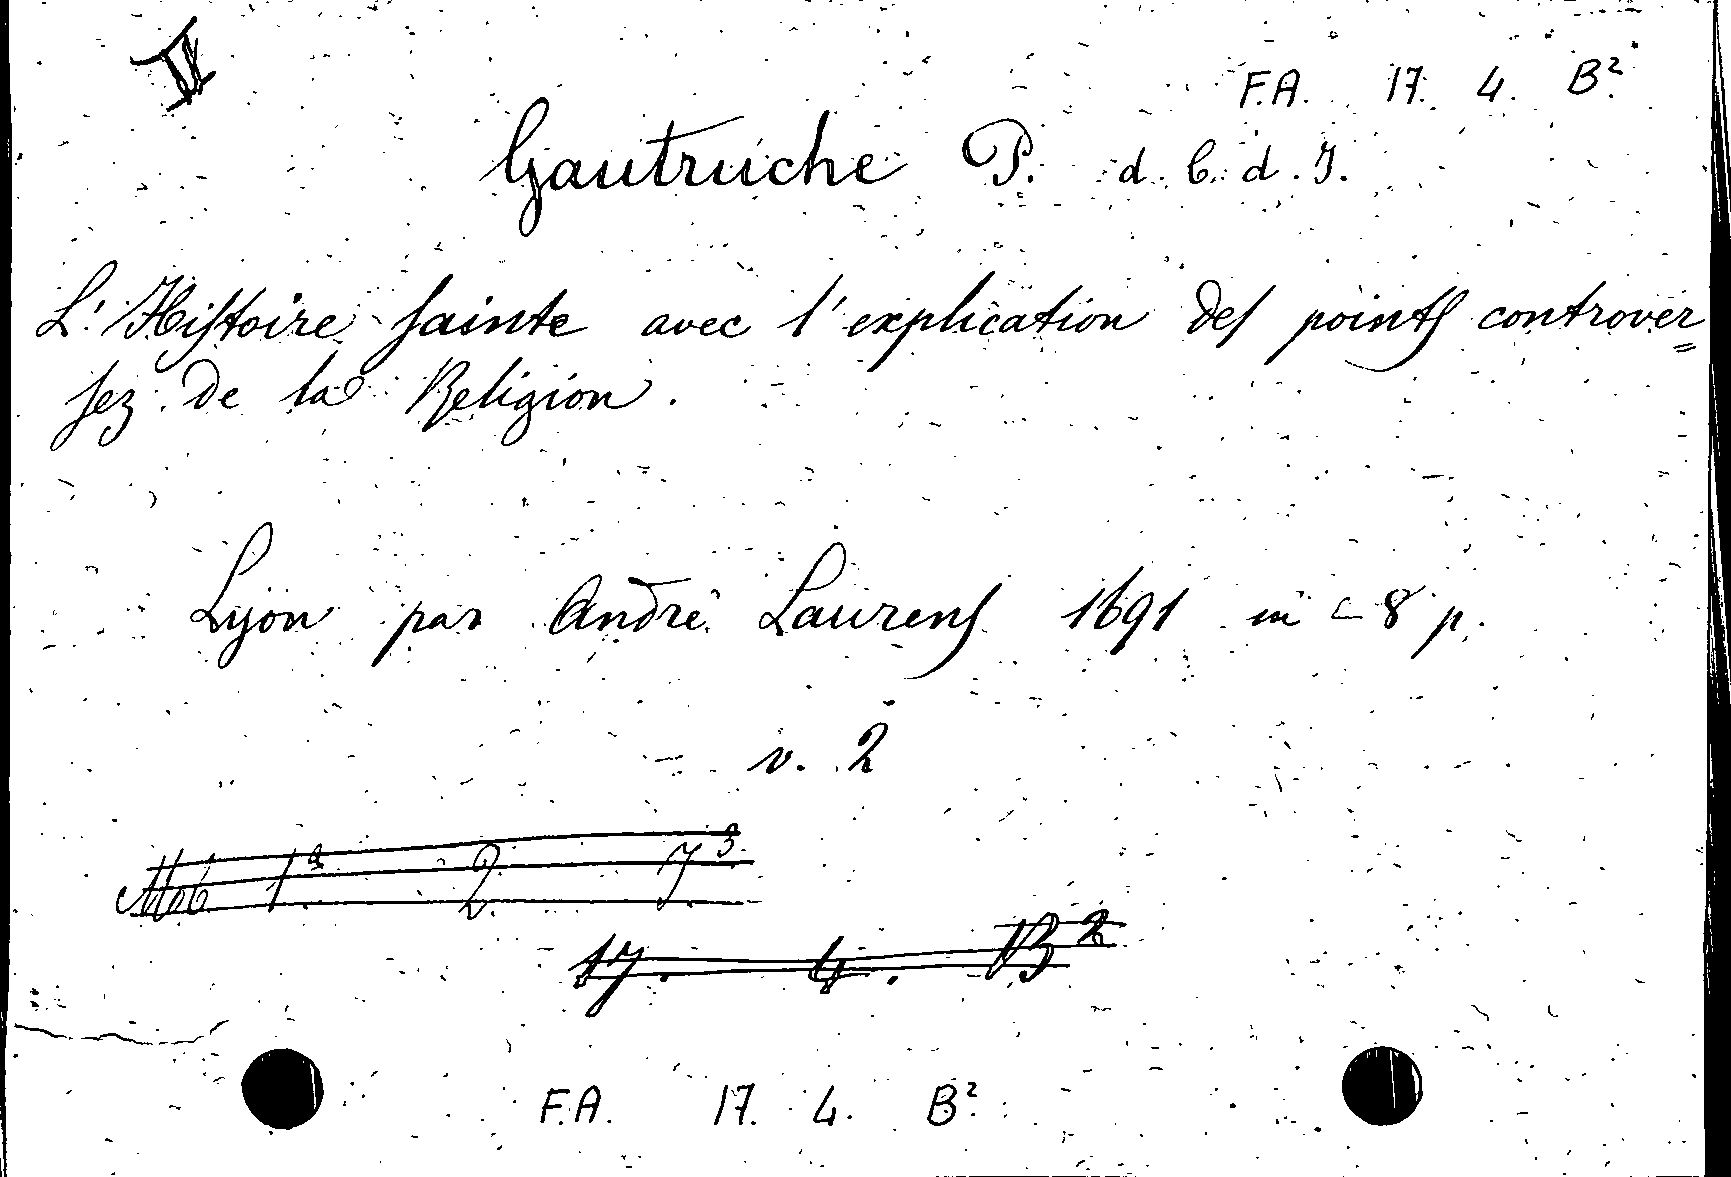 II
F.A. 17. 4. B²
Gautruche P. d. C. d. J.
L'Histoire sainte avec l'explication des points controver=
sez de la Religion.
Lyon par André Laurens 1691 in-8 p.
v. 2
Mob 1ª 2. 7.³
17. 4. B²
F.A. 17. 4. B²